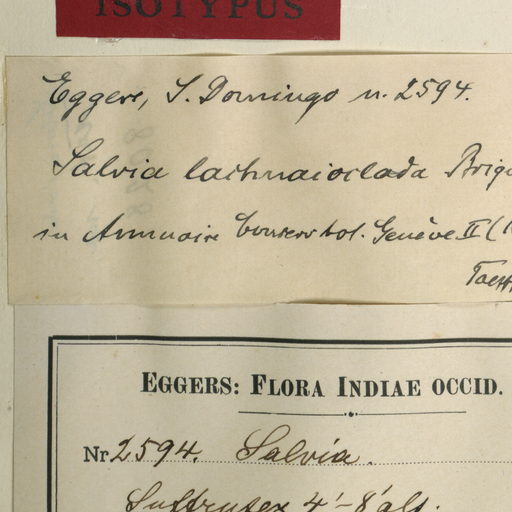 ISOTYPUS
Eggers, S. Domingo n. 2594.
Salvia lachnaioclada Briq
in Annuaire Conserv. bot. Genève II (1
EGGERS: FLORA INDIAE OCCID.
Nr 2594. Salvia.
Suffrutex 4'-8' alt.